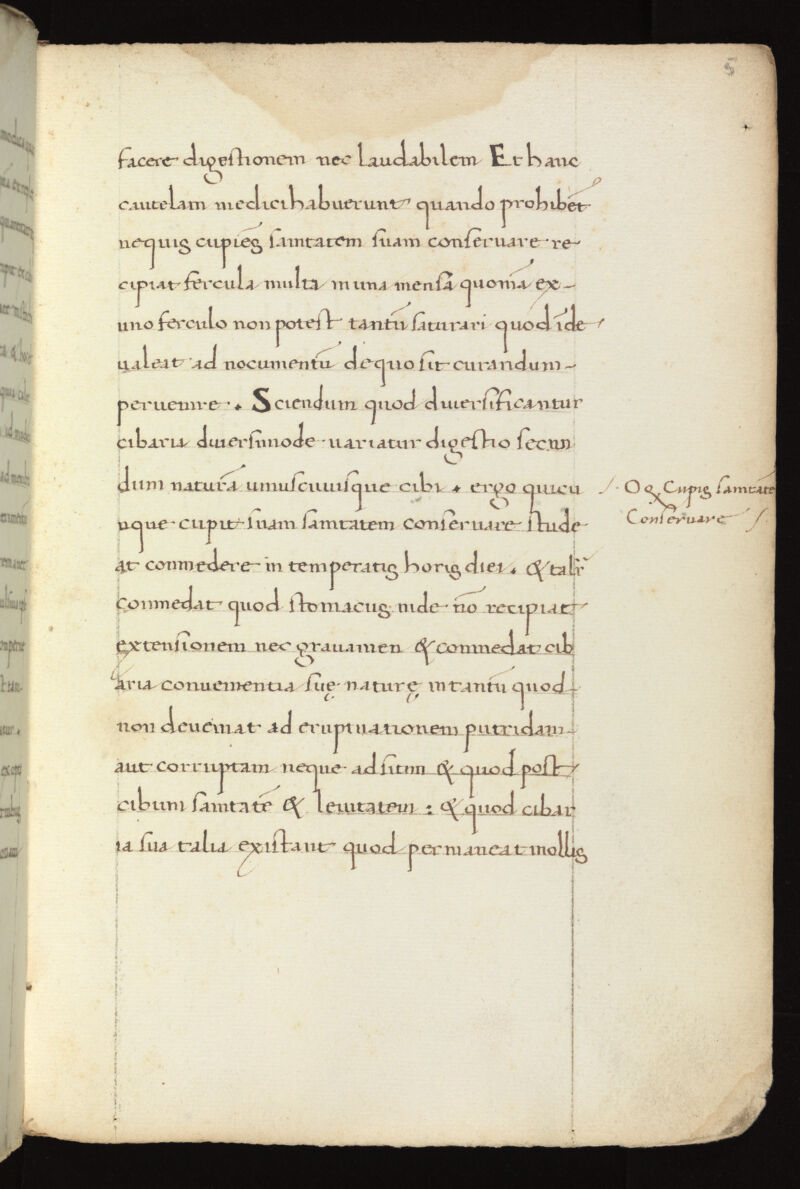 5
facere digestionem nec laudabilem Et hanc
cautelam medici habuerunt quando prohibēt
ne quis cupiēs sanitatem suam conseruare re-
cipiat fercula multa in una mensā quoniā ex-
uno ferculo non potest tantū saturari quod īde
ualeat ad nocumentū de quo sit curandum-
peruenire. Sciendum quod diuersificantur
cibaria diuersimode uariatur digestio secun
dum naturā uniuscuiusque cibi. ergo quicu
nque cupit suam sanitatem conseruare stude
at conmedere in temperatis horis diei. & talr̄
conmedat quod stomacus inde nō recipiat
extensionem nec grauamen & conmedat cib
aria conuenientia suę naturę in tantū quod
non deueniat ad eruptuationem putridam-
aut corruptam neque ad sitim & quod post
cibum sanitatē & leuitatem: & quod cibar
ia sua talia existant quod permaneat mollis
O q Cupis sanitatē
Conseruare